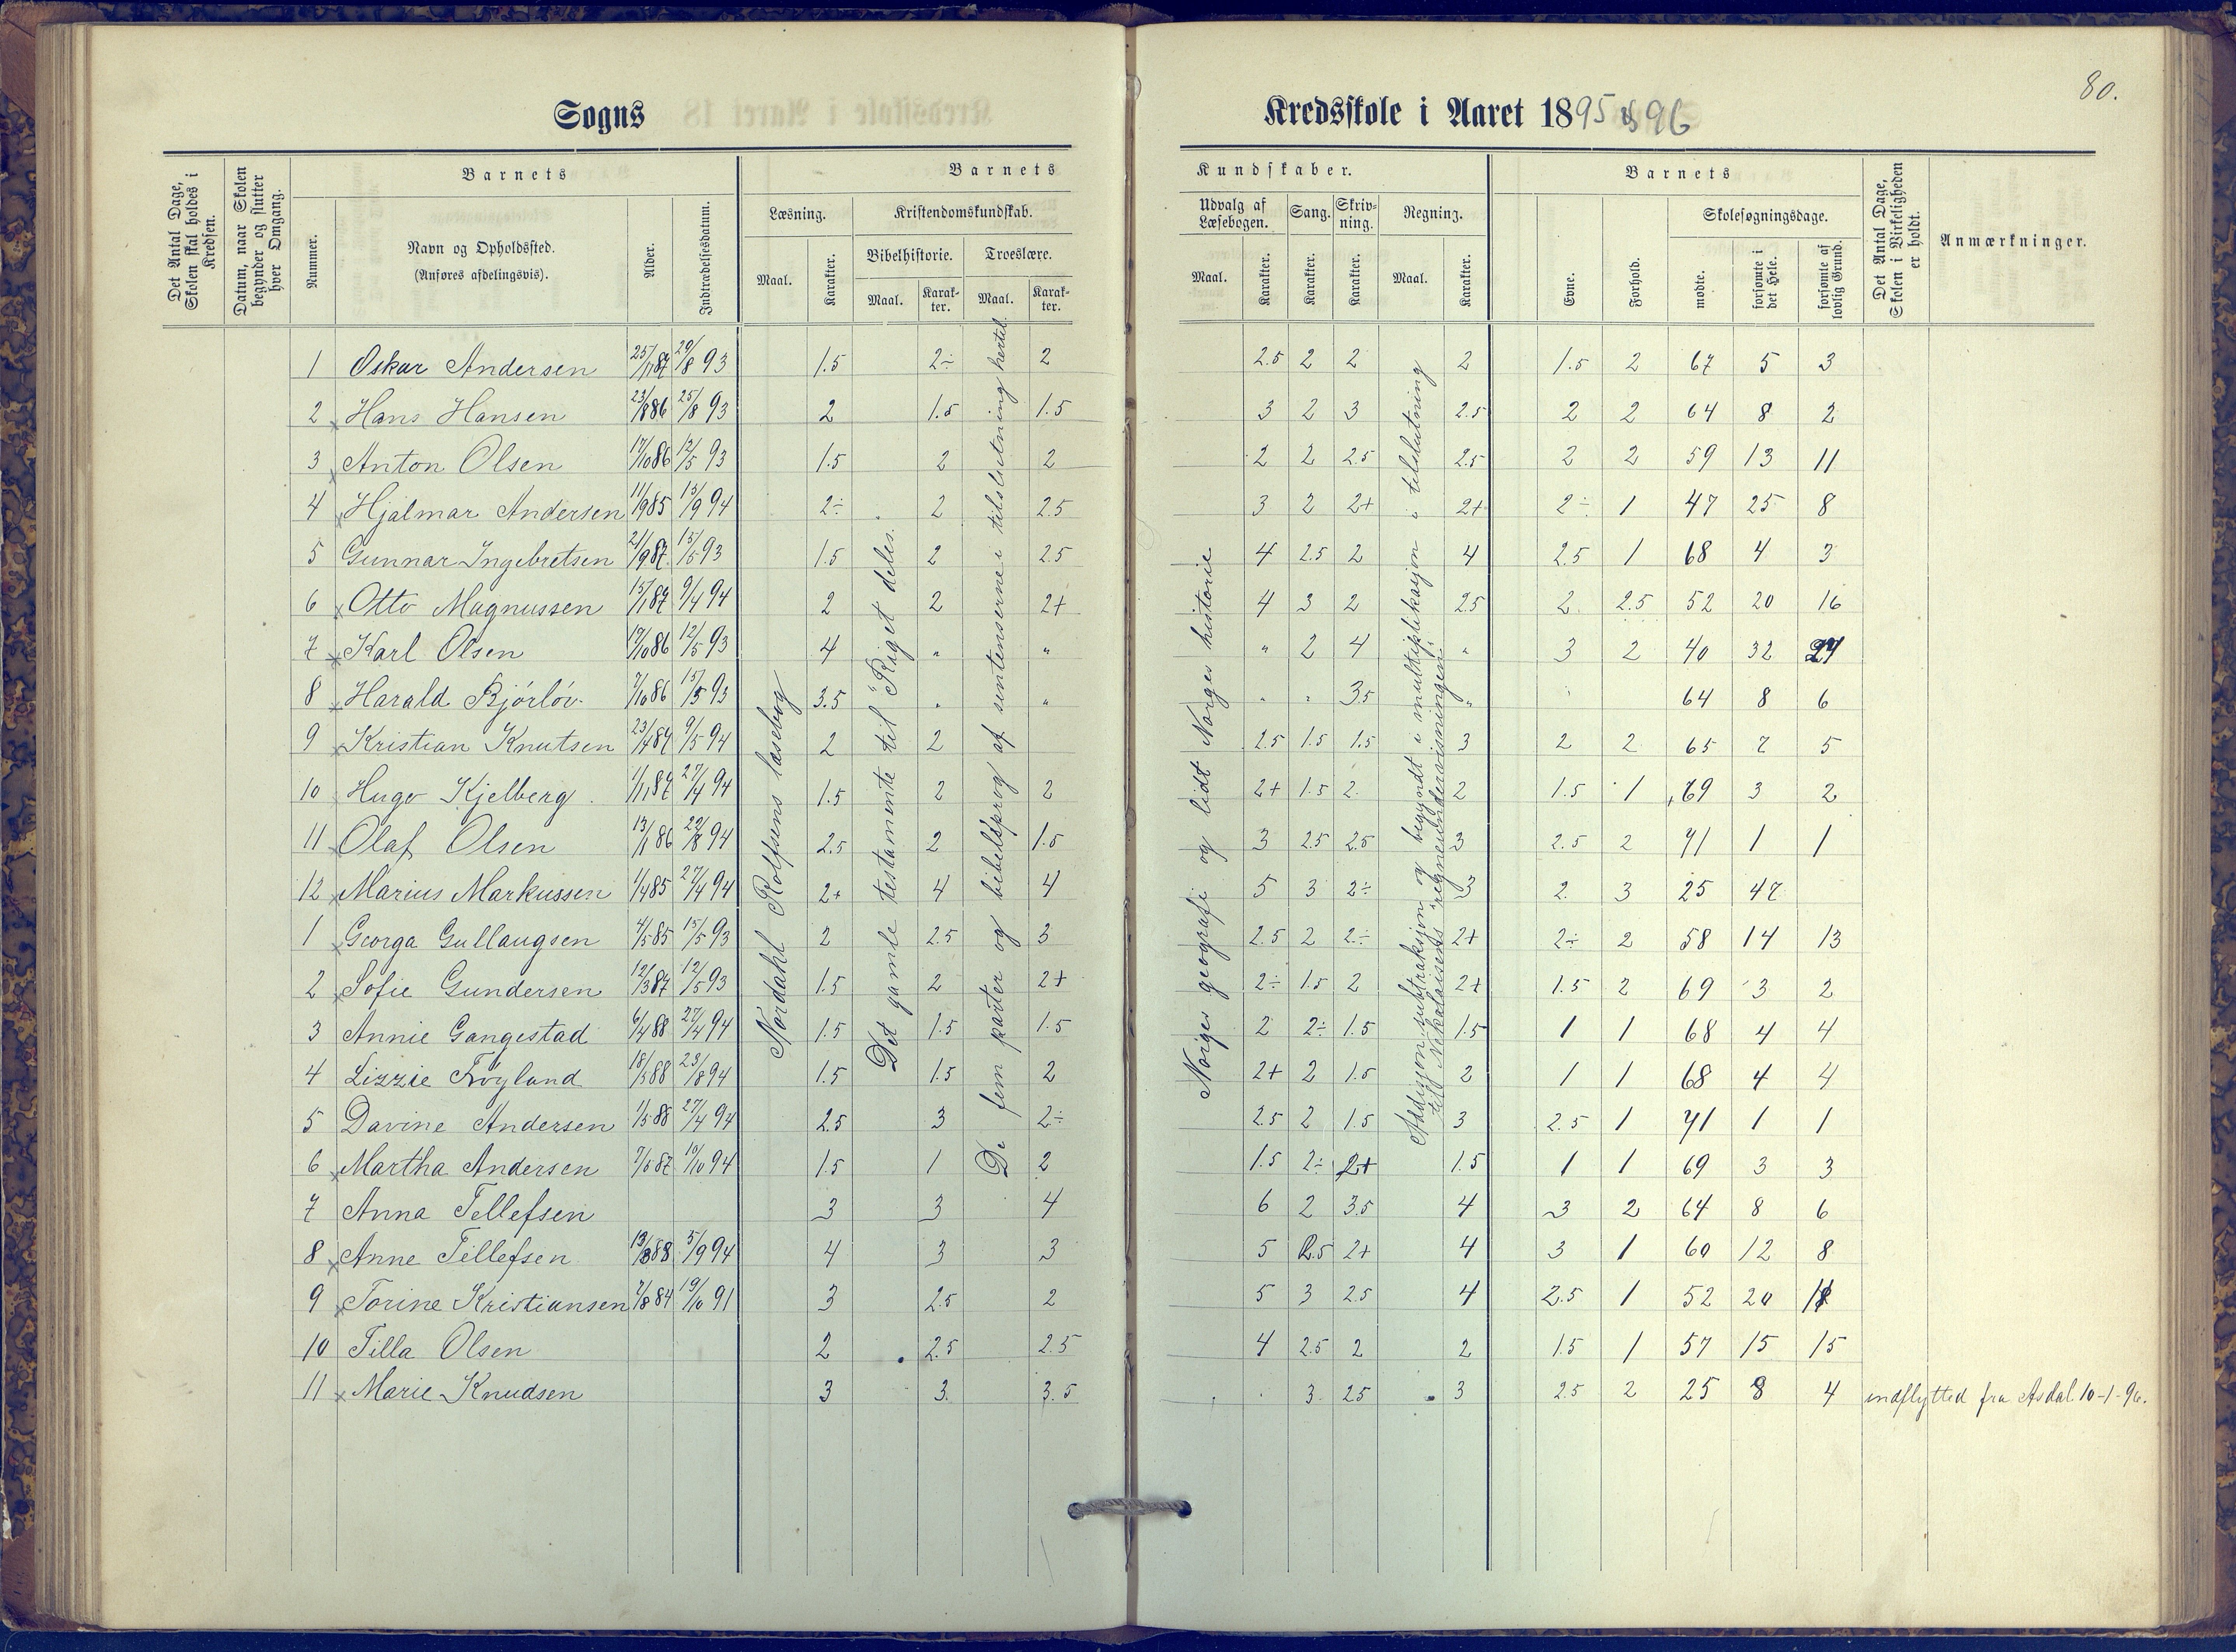 80.
Sogns
Kredsskole i Aaret 1895 & 96
Det Antal Dage, Skolen skal holdes i Kredsen.
Datum, naar Skolen begynder og slutter hver Omgang.
Barnets
Nummer.
Navn og Opholdssted.
(Anføres afdelingsvis).
Alder.
Indtrædelsesdatum.
Barnets
Læsning.
Maal.
Karakter.
Kristendomskundskab.
Bibelhistorie.
Maal.
Karak-ter.
Troeslære.
Maal.
Karak-ter.
Kundskaber.
Udvalg af Læsebogen.
Maal.
Karakter.
Sang.
Karakter.
Skriv-ning.
Karakter.
Regning.
Maal.
Karakter.
Barnets
Evne.
Forhold.
Skolesøgningsdage.
mødte.
forsømte i det Hele.
forsømte af lovlig Grund.
Det Antal Dage, Skolen i Virkeligheden er holdt.
Anmærkninger.
1 Oskar Andersen 25/11 87 29/8 93 1.5 2÷ 2 2.5 2 2 2 1.5 2 67 5 3
2 Hans Hansen 23/8 86 25/8 93 2 1.5 1.5 3 2 3 2.5 2 2 64 8 2
3 Anton Olsen 17/10 86 12/5 93 1.5 2 2 2 2 2.5 2.5 2 2 59 13 11
4 Hjalmar Andersen 11/9 85 15/9 94 2÷ 2 2.5 3 2 2+ 2+ 2÷ 1 47 25 8
5 Gunnar Ingebretsen 21/9 87 15/5 93 1.5 2 2.5 4 2.5 2 4 2.5 1 68 4 3
6 Otto Magnussen 15/1 87 9/4 94 2 2 2+ 4 3 2 2.5 2 2.5 52 20 16
7 Karl Olsen 17/10 86 12/5 93 4 " " " 2 4 " 3 2 40 32
8 Harald Bjórlöv 7/10 86 15/5 93 3.5 " " " " 3.5 " 64 8 6
9 Kristian Knutsen 23/4 87 9/5 94 2 2 2.5 1.5 1.5 3 2 2 65 7 5
10 Hugo Kjelberg 1/11 87 27/4 94 1.5 2 2 2+ 1.5 2 2 1.5 1 69 3 2
11 Olaf Olsen 13/1 86 29/8 94 2.5 2 1.5 3 2.5 2.5 3 2.5 2 71 1 1
12 Marius Markussen 1/4 85 27/4 94 2+ 4 4 5 3 2÷ 3 2 3 25 47
1 Georga Gullaugsen 4/5 85 15/5 93 2 2.5 3 2.5 2 2÷ 2+ 2÷ 2 58 14 13
2 Sofie Gundersen 12/3 87 12/5 93 1.5 2 2+ 2÷ 1.5 2 2+ 1.5 2 69 3 2
3 Annie Gangestad 6/4 88 27/4 94 1.5 1.5 1.5 2 2÷ 1.5 1.5 1 1 68 4 4
4 Lizzie Fröyland 18/5 88 23/8 94 1.5 1.5 2 2+ 2 1.5 2 1 1 68 4 4
5 Davine Andersen 1/5 88 27/4 94 2.5 3 2÷ 2.5 2 1.5 3 2.5 1 71 1 1
6 Martha Andersen 7/5 87 10/10 94 1.5 1 2 1.5 2÷ 2+ 1.5 1 1 69 3 3
7 Anna Tellefsen 3 3 4 6 2 3.5 4 3 2 64 8 6
8 Anne Tellefsen 13/3 88 5/9 94 4 3 3 5 2.5 2+ 4 3 1 60 12 8
9 Torine Kristiansen 7/8 84 19/10 91 3 2.5 2 5 3 2.5 4 2.5 1 52 20
10 Tilla Olsen 2 2.5 2.5 4 2.5 2 2 1.5 1 57 15 15
11 Marie Knudsen 3 3 3.5 3 2.5 3 2.5 2 25 8 4 indflytted fra Asdal 10-1-96.
Nordahl Rolfsens læsebog
Det gamle testamente til "Riget deles.
De fem parter og bibelsprog af sentenserne i tilslutning hertil
Norges geografi og lidt Norges historie
Addisjon, subtraksjon og begyndt i multiplikasjon i tilslutning
til Nikolaisens regneundervisningen.